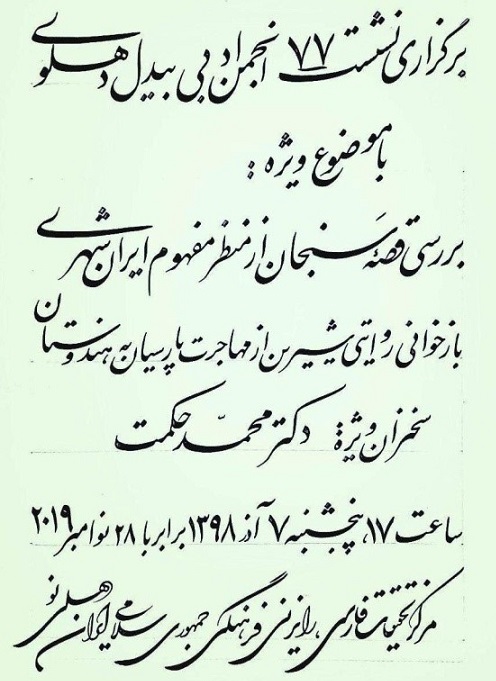 برگزاری نشست ۷۷ انجمن ادبی بیدل دهلوی
با موضوع ویژه :
بررسی قصّهٔ سنجان از منظر مفهوم ایران‌شهری
بازخوانی روایتی شیرین از مهاجرت پارسیان به هندوستان
سخنران ویژه: دکتر محمّد حکمت
ساعت ۱۷، پنجشنبه ۷ آذر ۱۳۹۸ برابر با ۲۸ نوامبر ۲۰۱۹
مرکز تحقیقات فارسی، رایزنی فرهنگی جمهوری اسلامی ایران دهلی نو